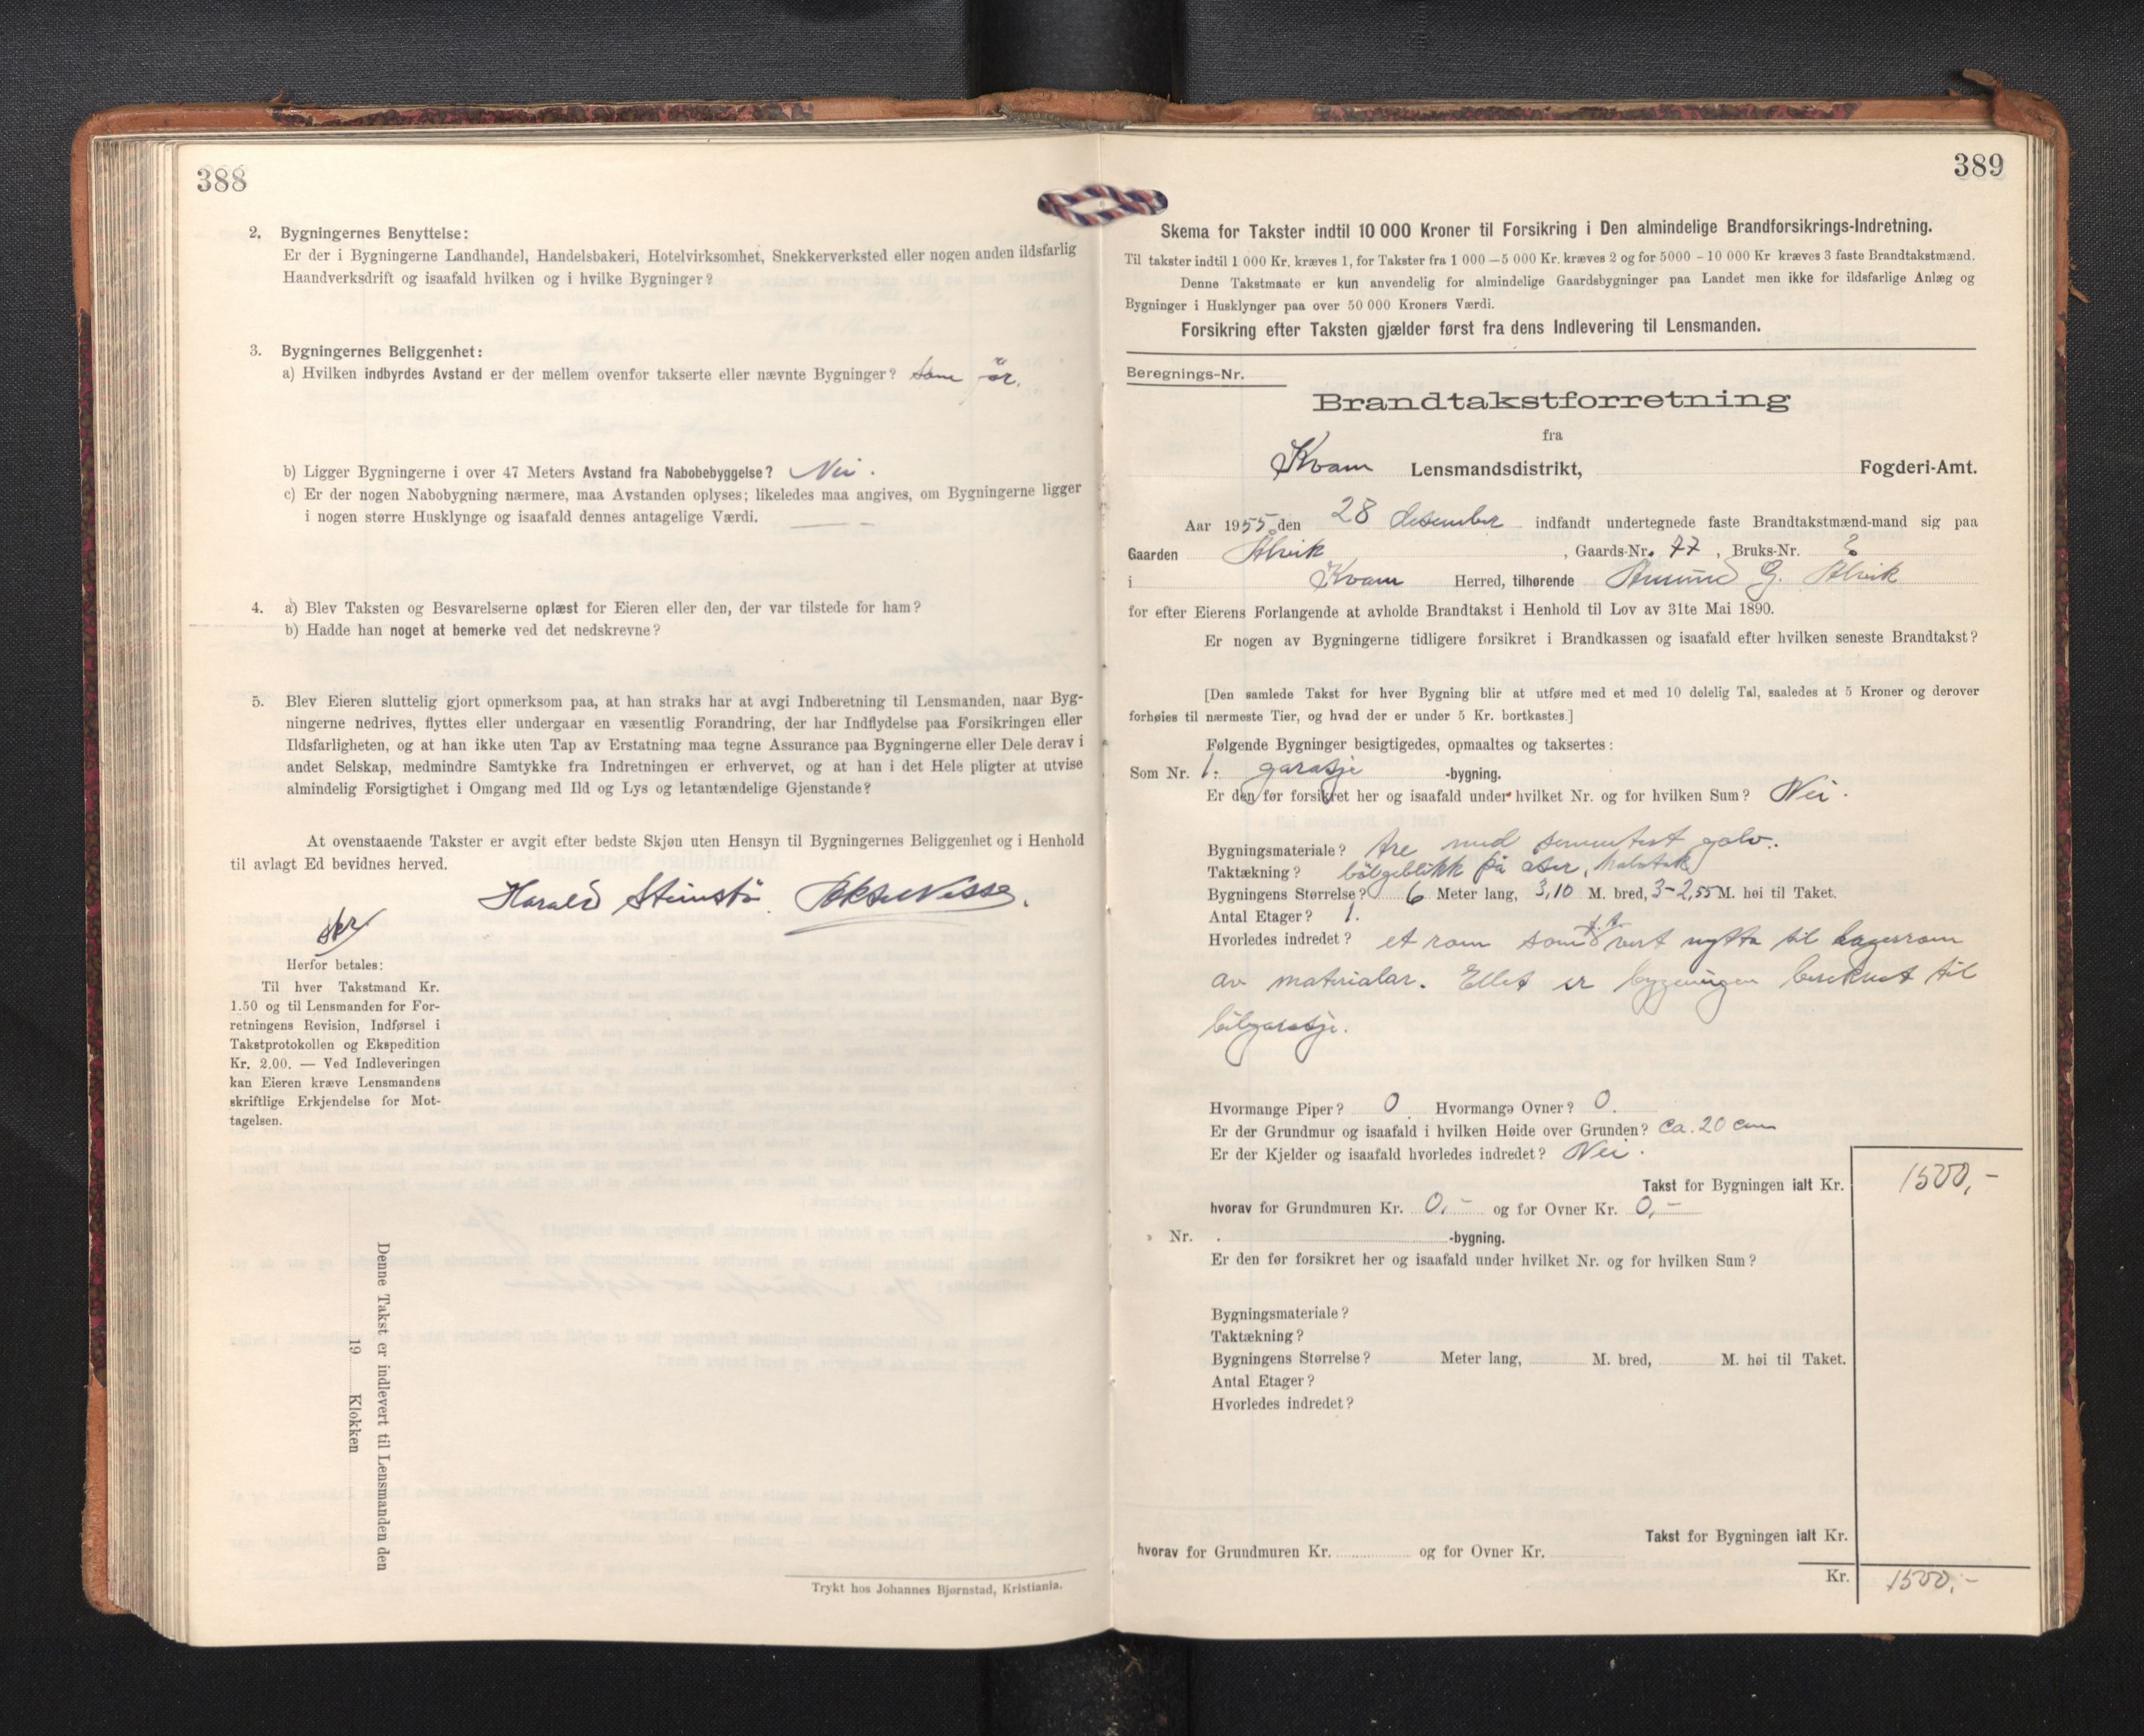 388
2. Bygningernes Benyttelse:
Er der i Bygningerne Landhandel, Handelsbakeri, Hotelvirksomhet, Snekkerverksted eller nogen anden ildsfarlig
Haandverksdrift og isaafald hvilken og i hvilke Bygninger?
3. Bygningernes Beliggenhet:
a) Hvilken indbyrdes Avstand er der mellem ovenfor takserte eller nævnte Bygninger? Som før.
b) Ligger Bygningerne i over 47 Meters Avstand fra Nabobebyggelse? Nei.
c) Er der nogen Nabobygning nærmere, maa Avstanden oplyses; likeledes maa angives, om Bygningerne ligger
i nogen større Husklynge og isaafald dennes antagelige Værdi.
4. a) Blev Taksten og Besvarelserne oplæst for Eieren eller den, der var tilstede for ham?
b) Hadde han noget at bemerke ved det nedskrevne?
5. Blev Eieren sluttelig gjort opmerksom paa, at han straks har at avgi Indberetning til Lensmanden, naar Byg-
ningerne nedrives, flyttes eller undergaar en væsentlig Forandring, der har Indflydelse paa Forsikringen eller
Ildsfarligheten, og at han ikke uten Tap av Erstatning maa tegne Assurance paa Bygningerne eller Dele derav i
andet Selskap, medmindre Samtykke fra Indretningen er erhvervet, og at han i det Hele pligter at utvise
almindelig Forsigtighet i Omgang med Ild og Lys og letantændelige Gjenstande?
At ovenstaaende Takster er avgit efter bedste Skjøn uten Hensyn til Bygningernes Beliggenhet og i Henhold
til avlagt Ed bevidnes herved.
Harald Steinstø.
Herfor betales:
Til hver Takstmand Kr.
1.50 og til Lensmanden for For-
retningens Revision, Indførsel i
Takstprotokollen og Ekspedition
Kr. 2.00. — Ved Indleveringen
kan Eieren kræve Lensmandens
skriftlige Erkjendelse for Mot-
tagelsen.
Denne Takst er indlevert til Lensmanden den
19 Klokken
Trykt hos Johannes Bjørnstad, Kristiania.
389
Skema for Takster indtil 10 000 Kroner til Forsikring i Den almindelige Brandforsikrings-Indretning.
Til takster indtil 1 000 Kr. kræves 1, for Takster fra 1 000 — 5 000 Kr. kræves 2 og for 5000 - 10 000 Kr kræves 3 faste Brandtakstmænd.
Denne Takstmaate er kun anvendelig for almindelige Gaardsbygninger paa Landet men ikke for ildsfarlige Anlæg og
Bygninger i Husklynger paa over 50 000 Kroners Værdi.
Forsikring efter Taksten gjælder først fra dens Indlevering til Lensmanden.
Beregnings-Nr.
Brandtakstforretning
fra
Kvam Lensmandsdistrikt, Fogderi-Amt.
Aar 1955 den 28 desember indfandt undertegnede faste Brandtakstmænd-mand sig paa
Gaarden Ålvik, Gaards-Nr. 77, Bruks-Nr. ?
i Kvam Herred, tilhørende Amund G. Ålvik
for efter Eierens Forlangende at avholde Brandtakst i Henhold til Lov av 31te Mai 1890.
Er nogen av Bygningerne tidligere forsikret i Brandkassen og isaafald efter hvilken seneste Brandtakst?
[Den samlede Takst for hver Bygning blir at utføre med et med 10 delelig Tal, saaledes at 5 Kroner og derover
forhøies til nærmeste Tier, og hvad der er under 5 Kr. bortkastes.]
Følgende Bygninger besigtigedes, opmaaltes og taksertes:
Som Nr. 1. garasje -bygning.
Er den før forsikret her og isaafald under hvilket Nr. og for hvilken Sum? Nei.
Bygningsmateriale? tre med sementert golv.
Taktækning? bølgeblikk på åser, halvtak
Bygningens Størrelse? 6 Meter lang, 3,10 M. bred, 3-2,55 M. høi til Taket.
Antal Etager? 1.
Hvorledes indredet? et rom som f.t. vert nytta til lagerrom
av materialar. Ellet er bygningen bereknet til
bilgarasje.
Hvormange Piper? 0 Hvormange Ovner? 0.
Er der Grundmur og isaafald i hvilken Høide over Grunden? ca. 20 cm
Er der Kjelder og isaafald hvorledes indredet? Nei.
Takst for Bygningen ialt Kr. 1500,-
hvorav for Grundmuren Kr. 0,- og for Ovner Kr. 0,-
» Nr. -bygning.
Er den før forsikret her og isaafald under hvilket Nr. og for hvilken Sum?
Bygningsmateriale?
Taktækning?
Bygningens Størrelse? Meter lang, M. bred, M. høi til Taket.
Antal Etager?
Hvorledes indredet?
Takst for Bygningen ialt Kr.
hvorav for Grundmuren Kr. og for Ovner Kr.
Kr. 1500,-